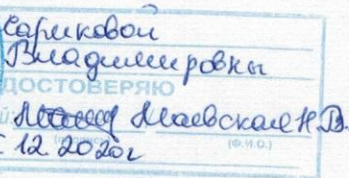 Сариковой
Владимировны
ДОСТОВЕРЯЮ
Маевская Н.В.
12 2020г
(Ф.И.О.)